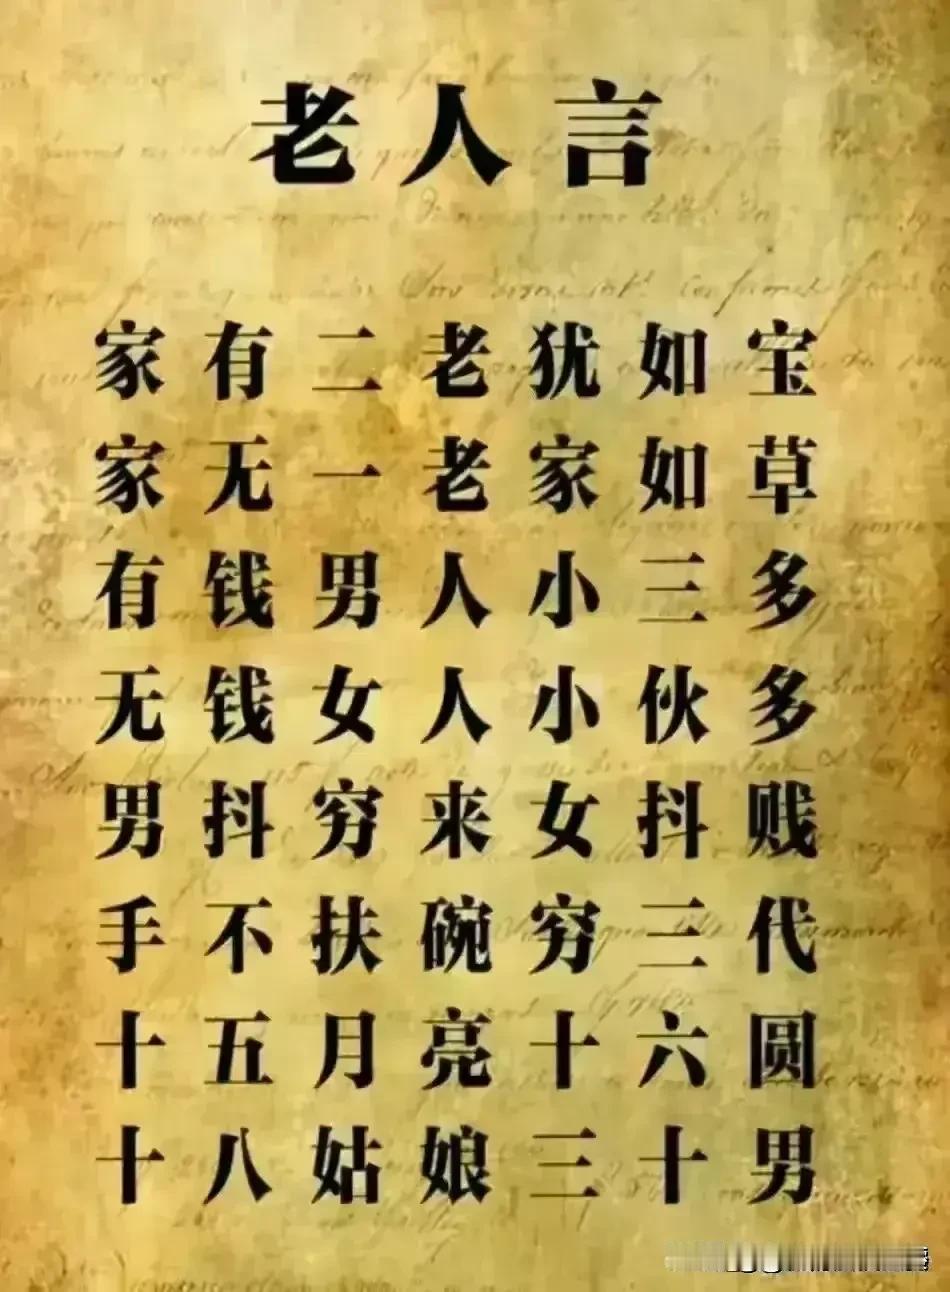 老人言
家有二老犹如宝
家无一老家如草
有钱男人小三多
无钱女人小伙多
男抖穷来女抖贱
手不扶碗穷三代
十五月亮十六圆
十八姑娘三十男